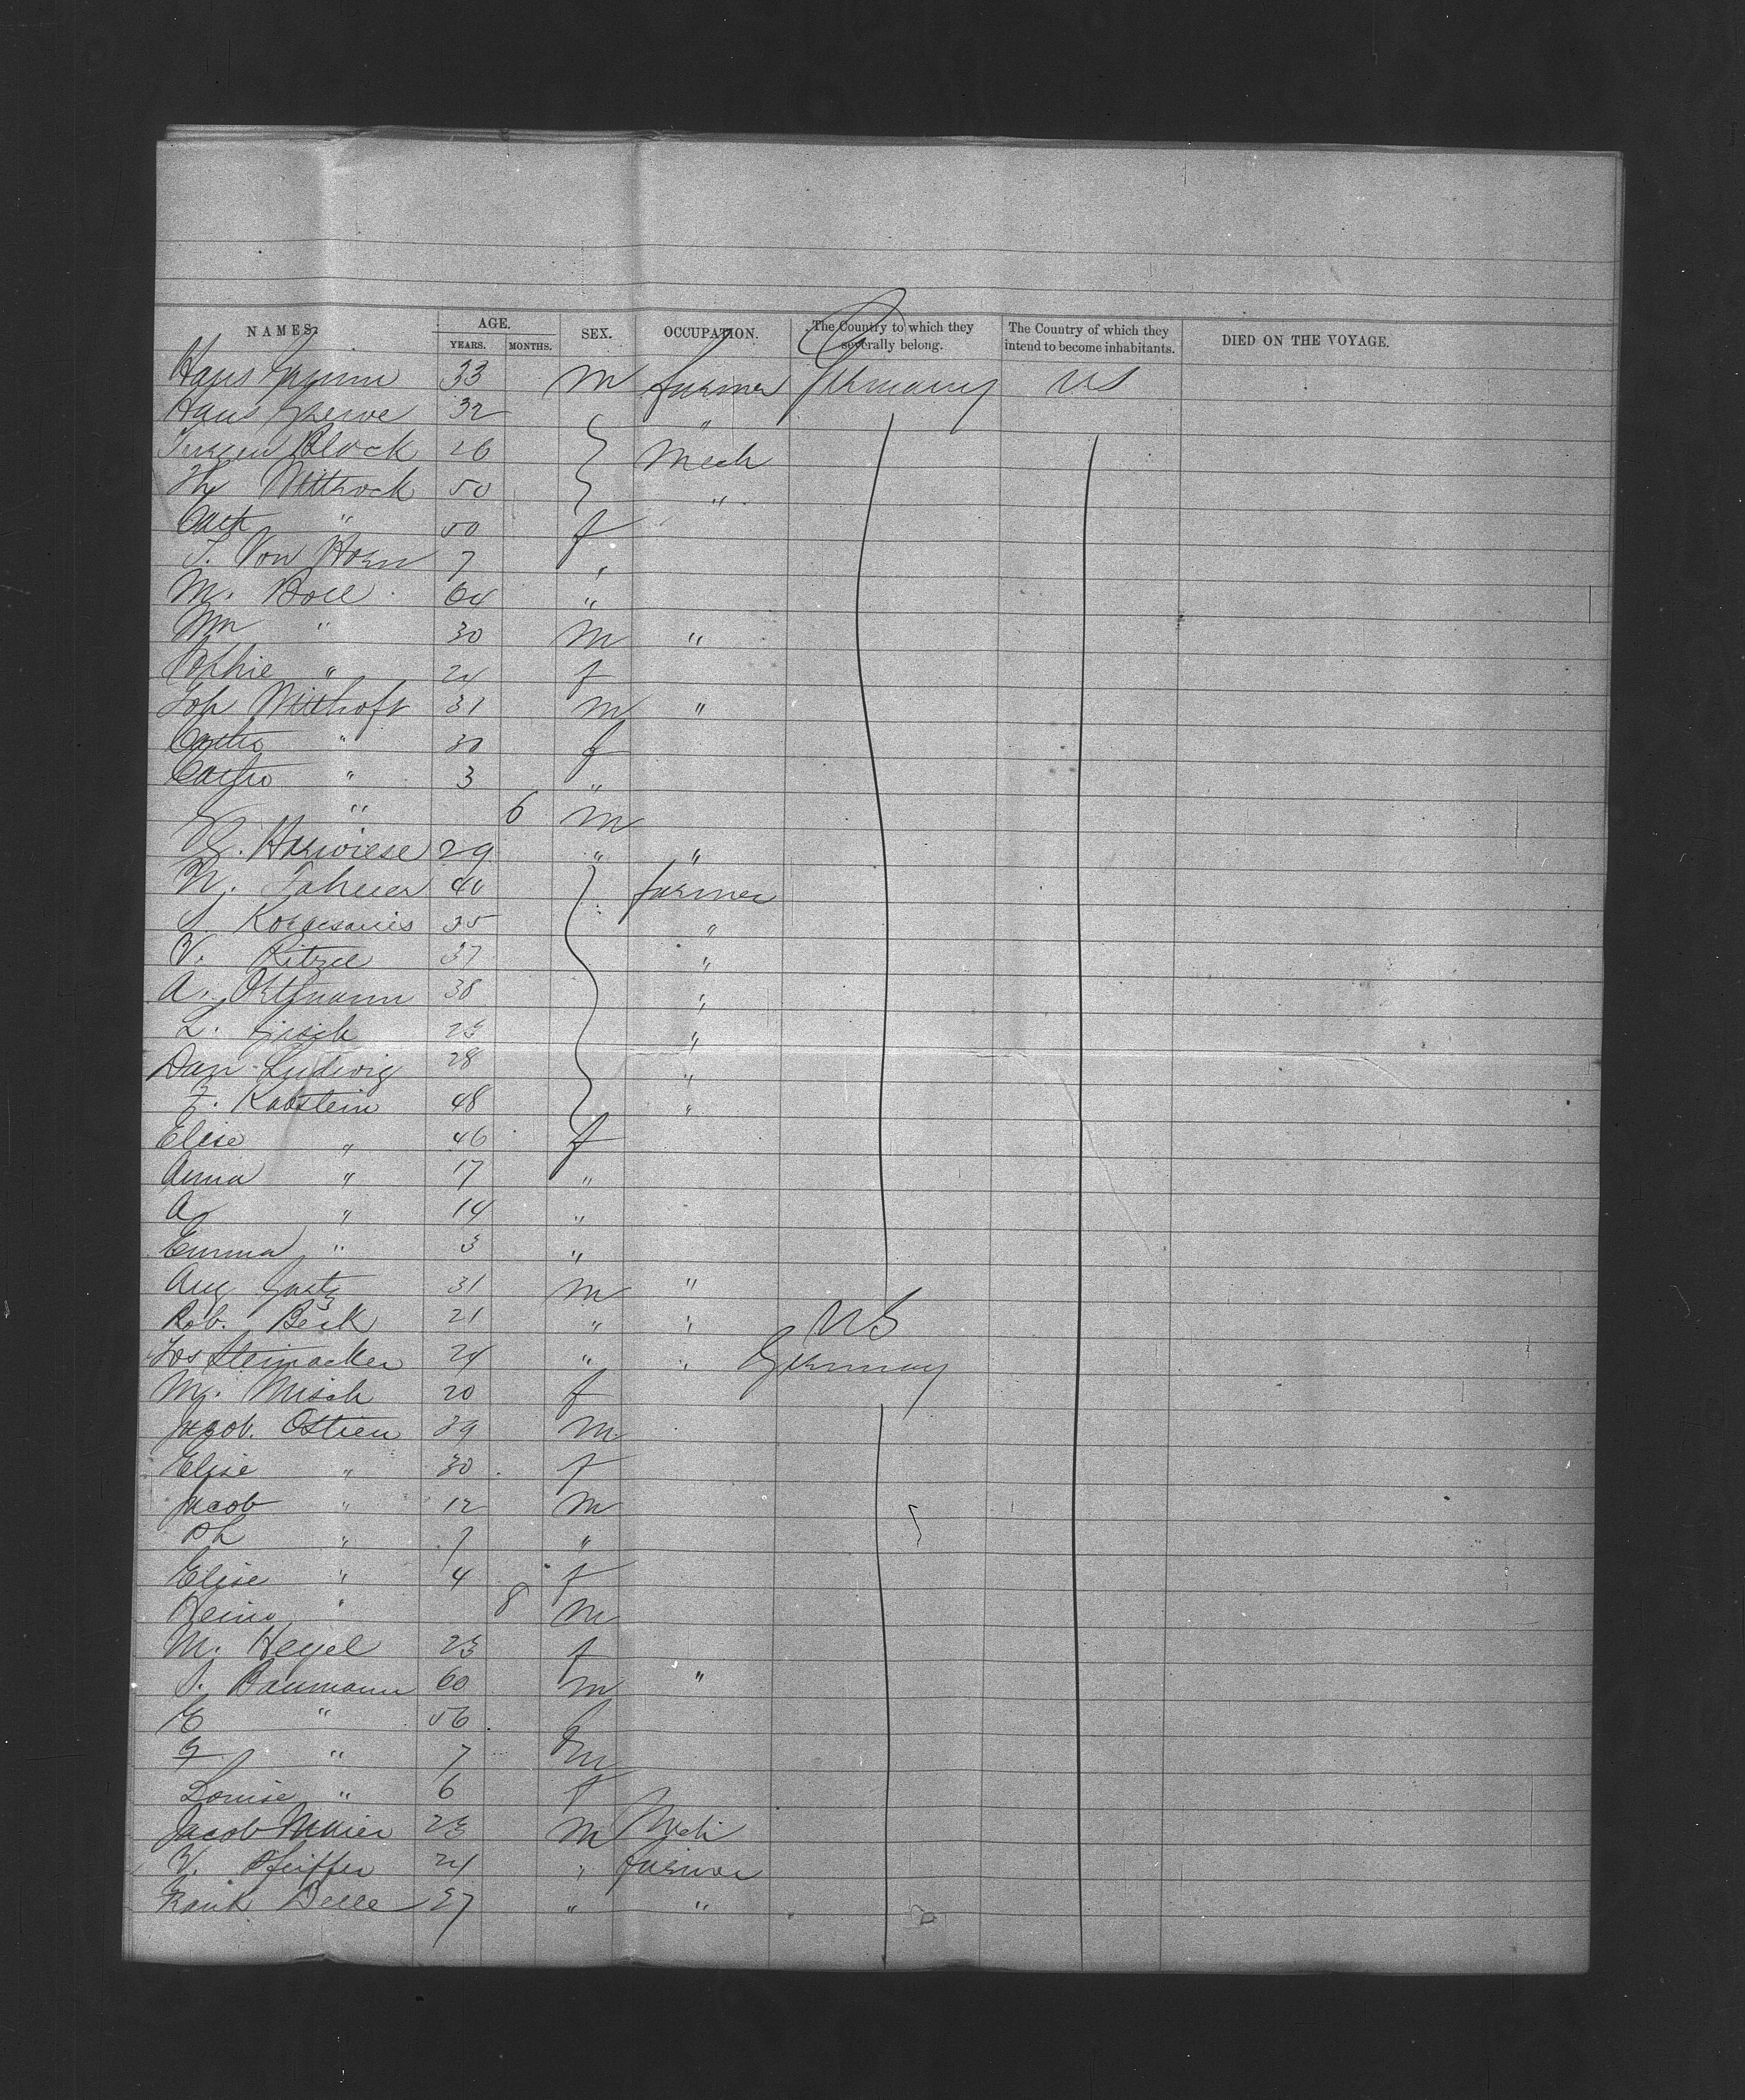 NAMES. AGE. SEX. OCCUPATION. The Country to which they severally belong. The Country of which they intend to become inhabitants. DIED ON THE VOYAGE.
YEARS. MONTHS.
Hans 33 m farmer Germany US
Hans 32 "
Block 26 Mech
Hy Wittrock 50 "
Cath " 50 f
T. Von Horn 7 "
M. Boll 64 "
Wm " 30 m "
Sophie " 24 f
Joh Witthoft 31 m "
" 30 f
" 3 "
" 6 m
Harwiese 29 " "
N. 40 farmer
35 "
V. Ritzel 37 "
A. Ortmann 38 "
L. 23 "
Dan Ludwig 28 "
F. Kabstein 48 "
Elise " 46 f
Anna " 17 "
A " 14 "
Emma " 3 "
Aug 31 m "
Rob. Beck 21 " " US
Jos Steinacker 24 " " Germany
M. Misch 20 f
Jacob. Ostien 39 m
Elise " 30 f
Jacob " 12 m
Ph " 7 "
Elise " 4 f
Heinr " 8 m
M. Heyel 23 f
S. Baumann 60 m "
E " 56 f
F " 7 m
Louise " 6 f
Jacob Maier 23 m Mech
V. Pfeiffer 24 " farmer
Frank Delle 27 " "